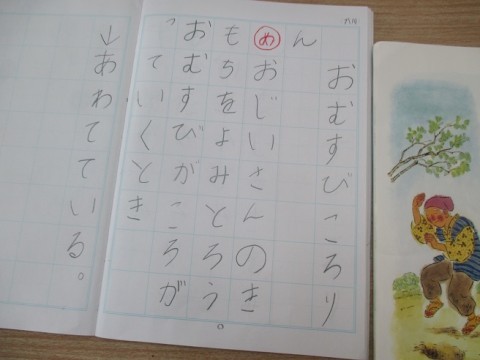 おむすびころり
ん
めおじいさんのき
もちをよみとろう。
おむすびがころが
っていくとき
→あわてている。